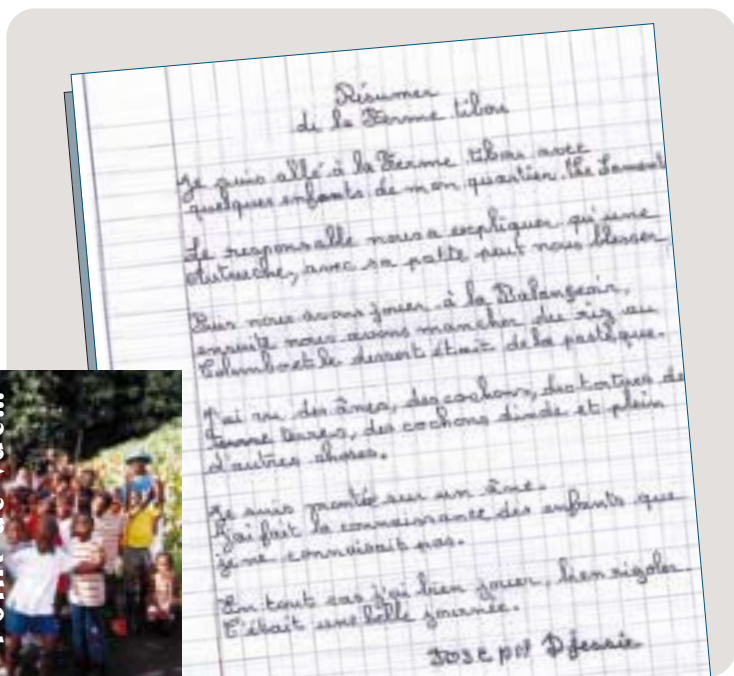 Résumer
de la Ferme tibou
Je suis allé à la Ferme tibou avec
quelques enfants de mon quartier. Che Lament
Le responsalle nous a expliquer qu'une
Autruche, avec sa patte peut nous blesser
Puis nous avons jouer à la Balançoir,
ensuite nous avons mancher du riz au
Colombo et le dessert était de la pastèque.
J'ai vu des ânes, des cochons, des tortues de
terre , des cochons dinde et plein
d'autres choses.
Je suis montée sur un âne.
J'ai fait la connaissance des enfants que
je ne connaissait pas.
En tout cas j'ai bien jouer, bien rigoler.
C'était une belle journée.
Joseph Djessie
Point de vue...